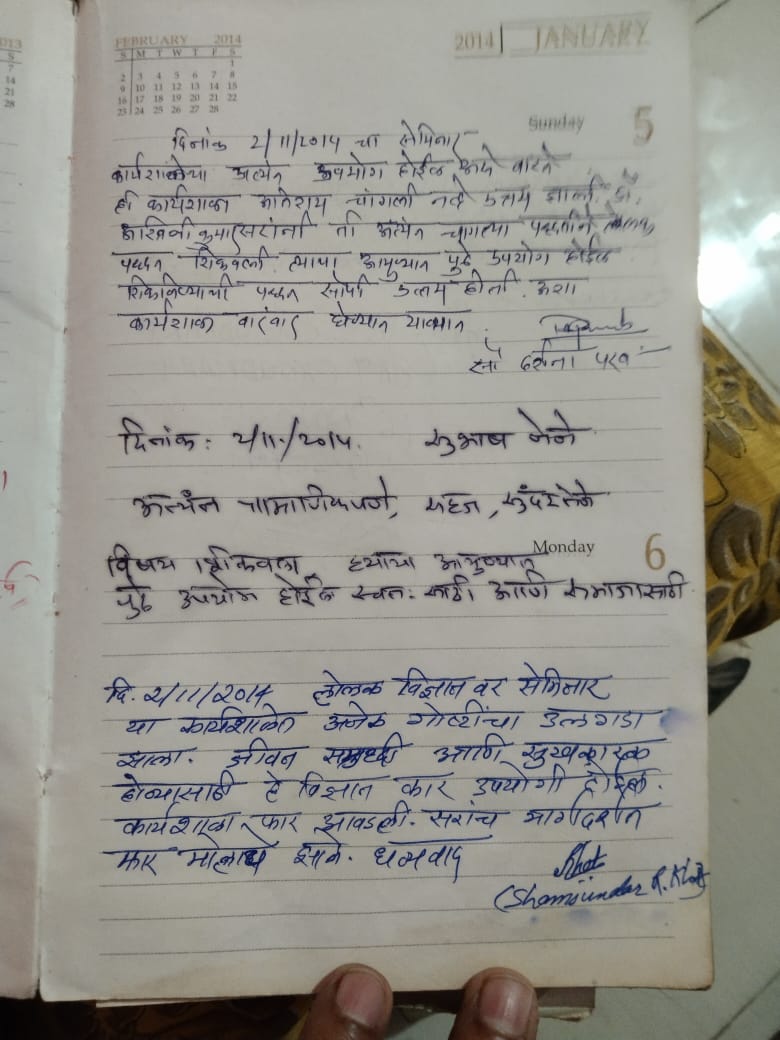 FEBRUARY 2014
S M T W T F S
1
2 3 4 5 6 7 8
9 10 11 12 13 14 15
16 17 18 19 20 21 22
23 24 25 26 27 28
2014 JANUARY
Sunday 5
दिनांक 2/11/2014 चा सेमिनार
कार्यशाळेचा अत्यंत उपयोग होईल असे वाटते
ही कार्यशाळा अतिशय चांगली नव्हे उत्तम झाली. डॉ.
अश्विनी कुमार सरांनी ती अत्यंत चांगल्या पद्धतीने
पद्धत शिकवली. त्याचा आयुष्यात पुढे उपयोग होईल
शिकविण्याची पद्धत सोपी उत्तम होती. अशा
कार्यशाळा वारंवार घेण्यात याव्यात.
सौ दर्शना परब
दिनांक: 2/11/2014. सुभाष नेने
अत्यंत प्रामाणिकपणे, सहज, सुंदरतेने
Monday 6
विषय शिकवला, ह्याचा आयुष्यात
पुढे उपयोग होईल स्वतः साठी आणि समाजासाठी
दि. 2/11/2014 लोलक विज्ञान वर सेमिनार
या कार्यशाळेत अनेक गोष्टींचा उलगडा
झाला. जीवन समृद्धी आणि सुखकारक
होण्यासाठी हे विज्ञान फार उपयोगी होईल.
कार्यशाळा फार आवडली. सरांच मार्गदर्शन
फार मोलाचे झाले. धन्यवाद
(Shamsundar R. Khot)